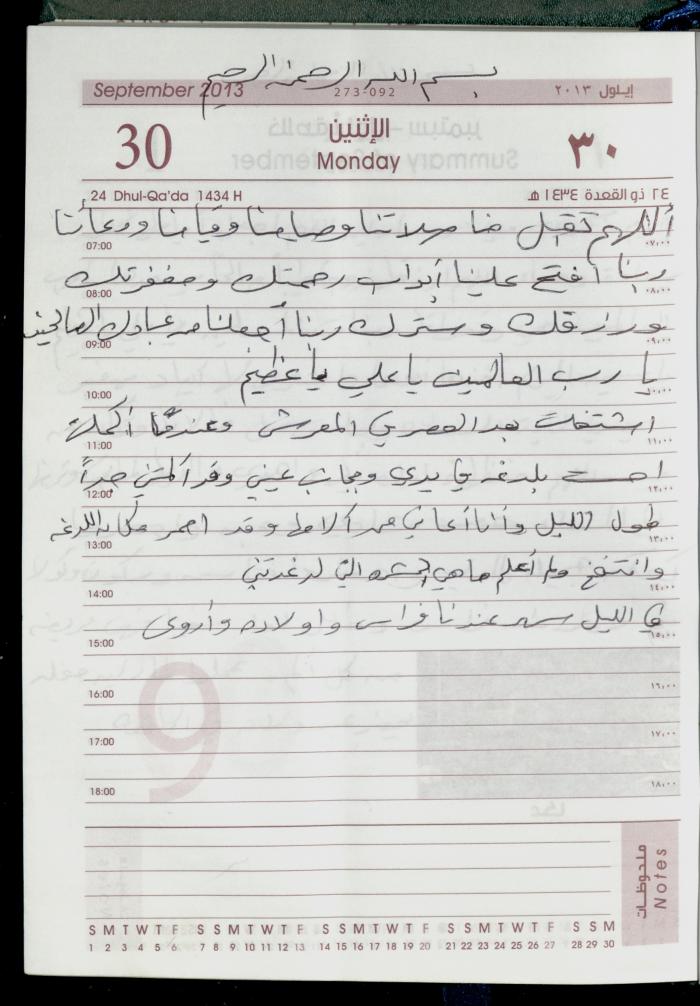 بسم الله الرحمن الرحيم
September 2013 273-092 إيلول ٢٠١٣
30 الإثنين ٣٠
Monday
24 Dhul-Qa'da 1434 H ٢٤ ذو القعدة ١٤٣٤ هـ
أللهم تقبل منا صلاتنا وصيامنا وقيامنا ودعائنا
07:00 ٠٧,٠٠
ربنا أفتح علينا أبواب رحمتك ومغفرتك
08:00 ٠٨,٠٠
ورزقك وسترك ربنا أجعلنا من عبادك الصالحين
09:00 ٠٩,٠٠
يا رب العالمين يا علي يا عظيم
10:00 ١٠,٠٠
اشتغلت بعد العصر في المعرش وعندما اكملت
11:00 ١١,٠٠
احسست بلدغه في يدي وبجانب عيني وقد آلمتني جداً
12:00 ١٢,٠٠
طول الليل وأنا أعاني من آلامها وقد احمر مكان اللدغه
13:00 ١٣,٠٠
وانتفخ ولم أعلم ما هي الحشره التي لدغتني
14:00 ١٤,٠٠
في الليل سهر عندنا فراس واولاده وأروى
15:00 ١٥,٠٠
16:00 ١٦,٠٠
17:00 ١٧,٠٠
18:00 ١٨,٠٠
ملحوظات
Notes
S M T W T F S S M T W T F S S M T W T F S S M T W T F S S M
1 2 3 4 5 6 7 8 9 10 11 12 13 14 15 16 17 18 19 20 21 22 23 24 25 26 27 28 29 30